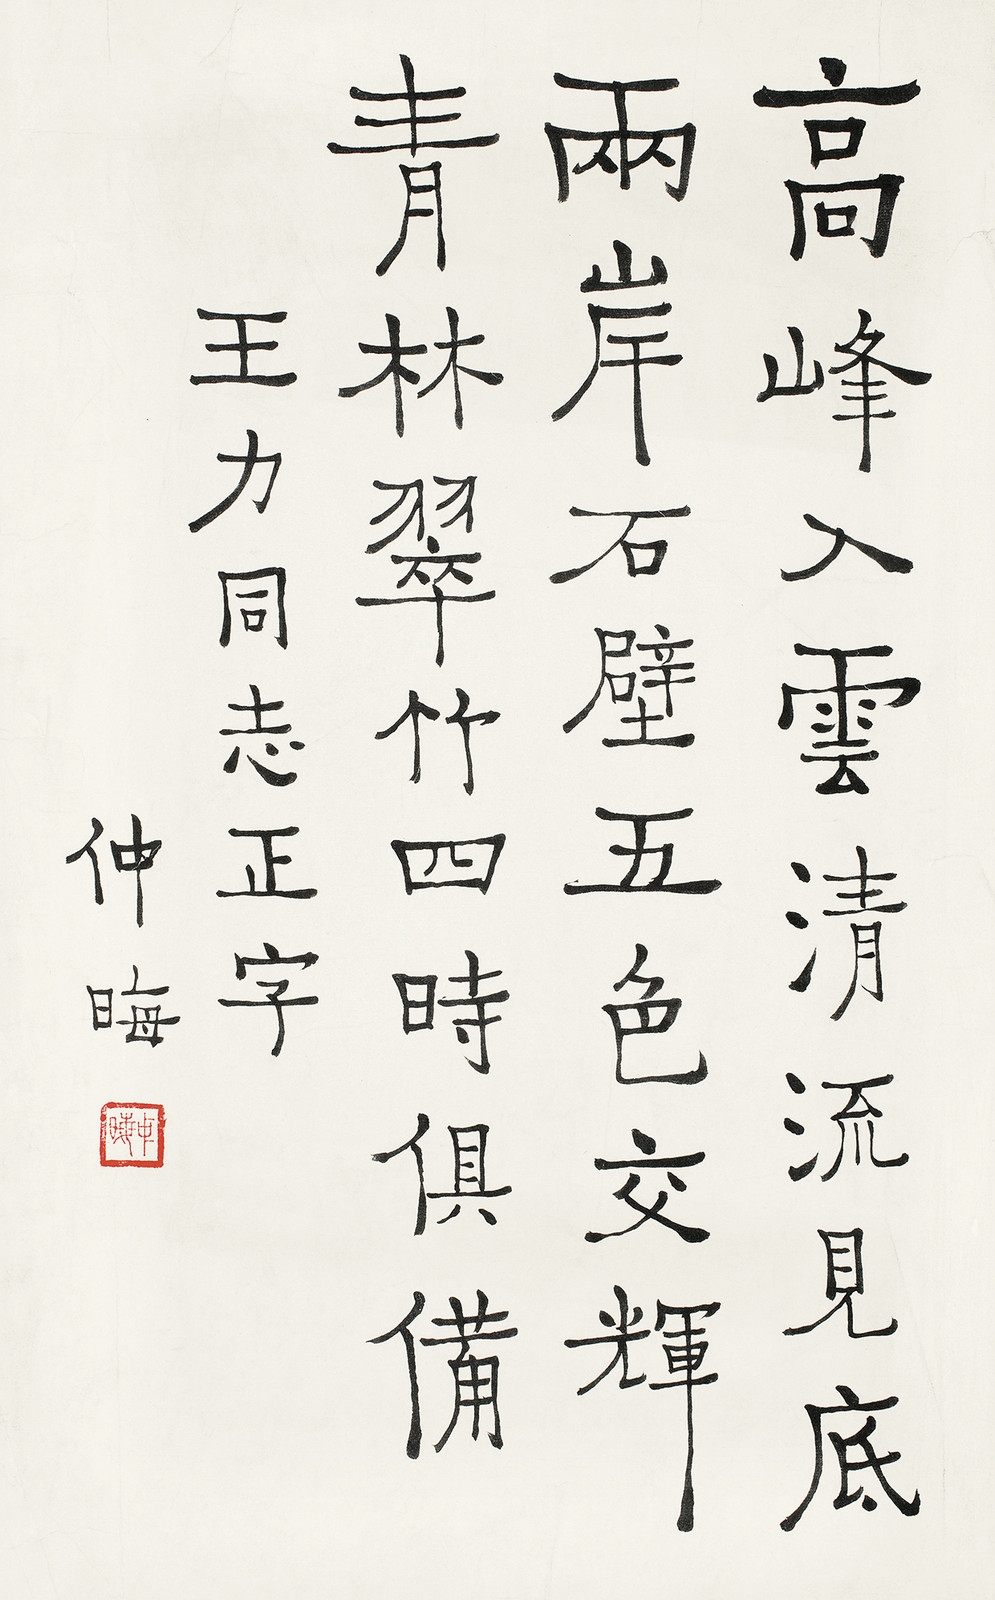 高峰入雲清流見底
兩岸石壁五色交輝
青林翠竹四時俱備
王力同志正字
仲晦
仲晦